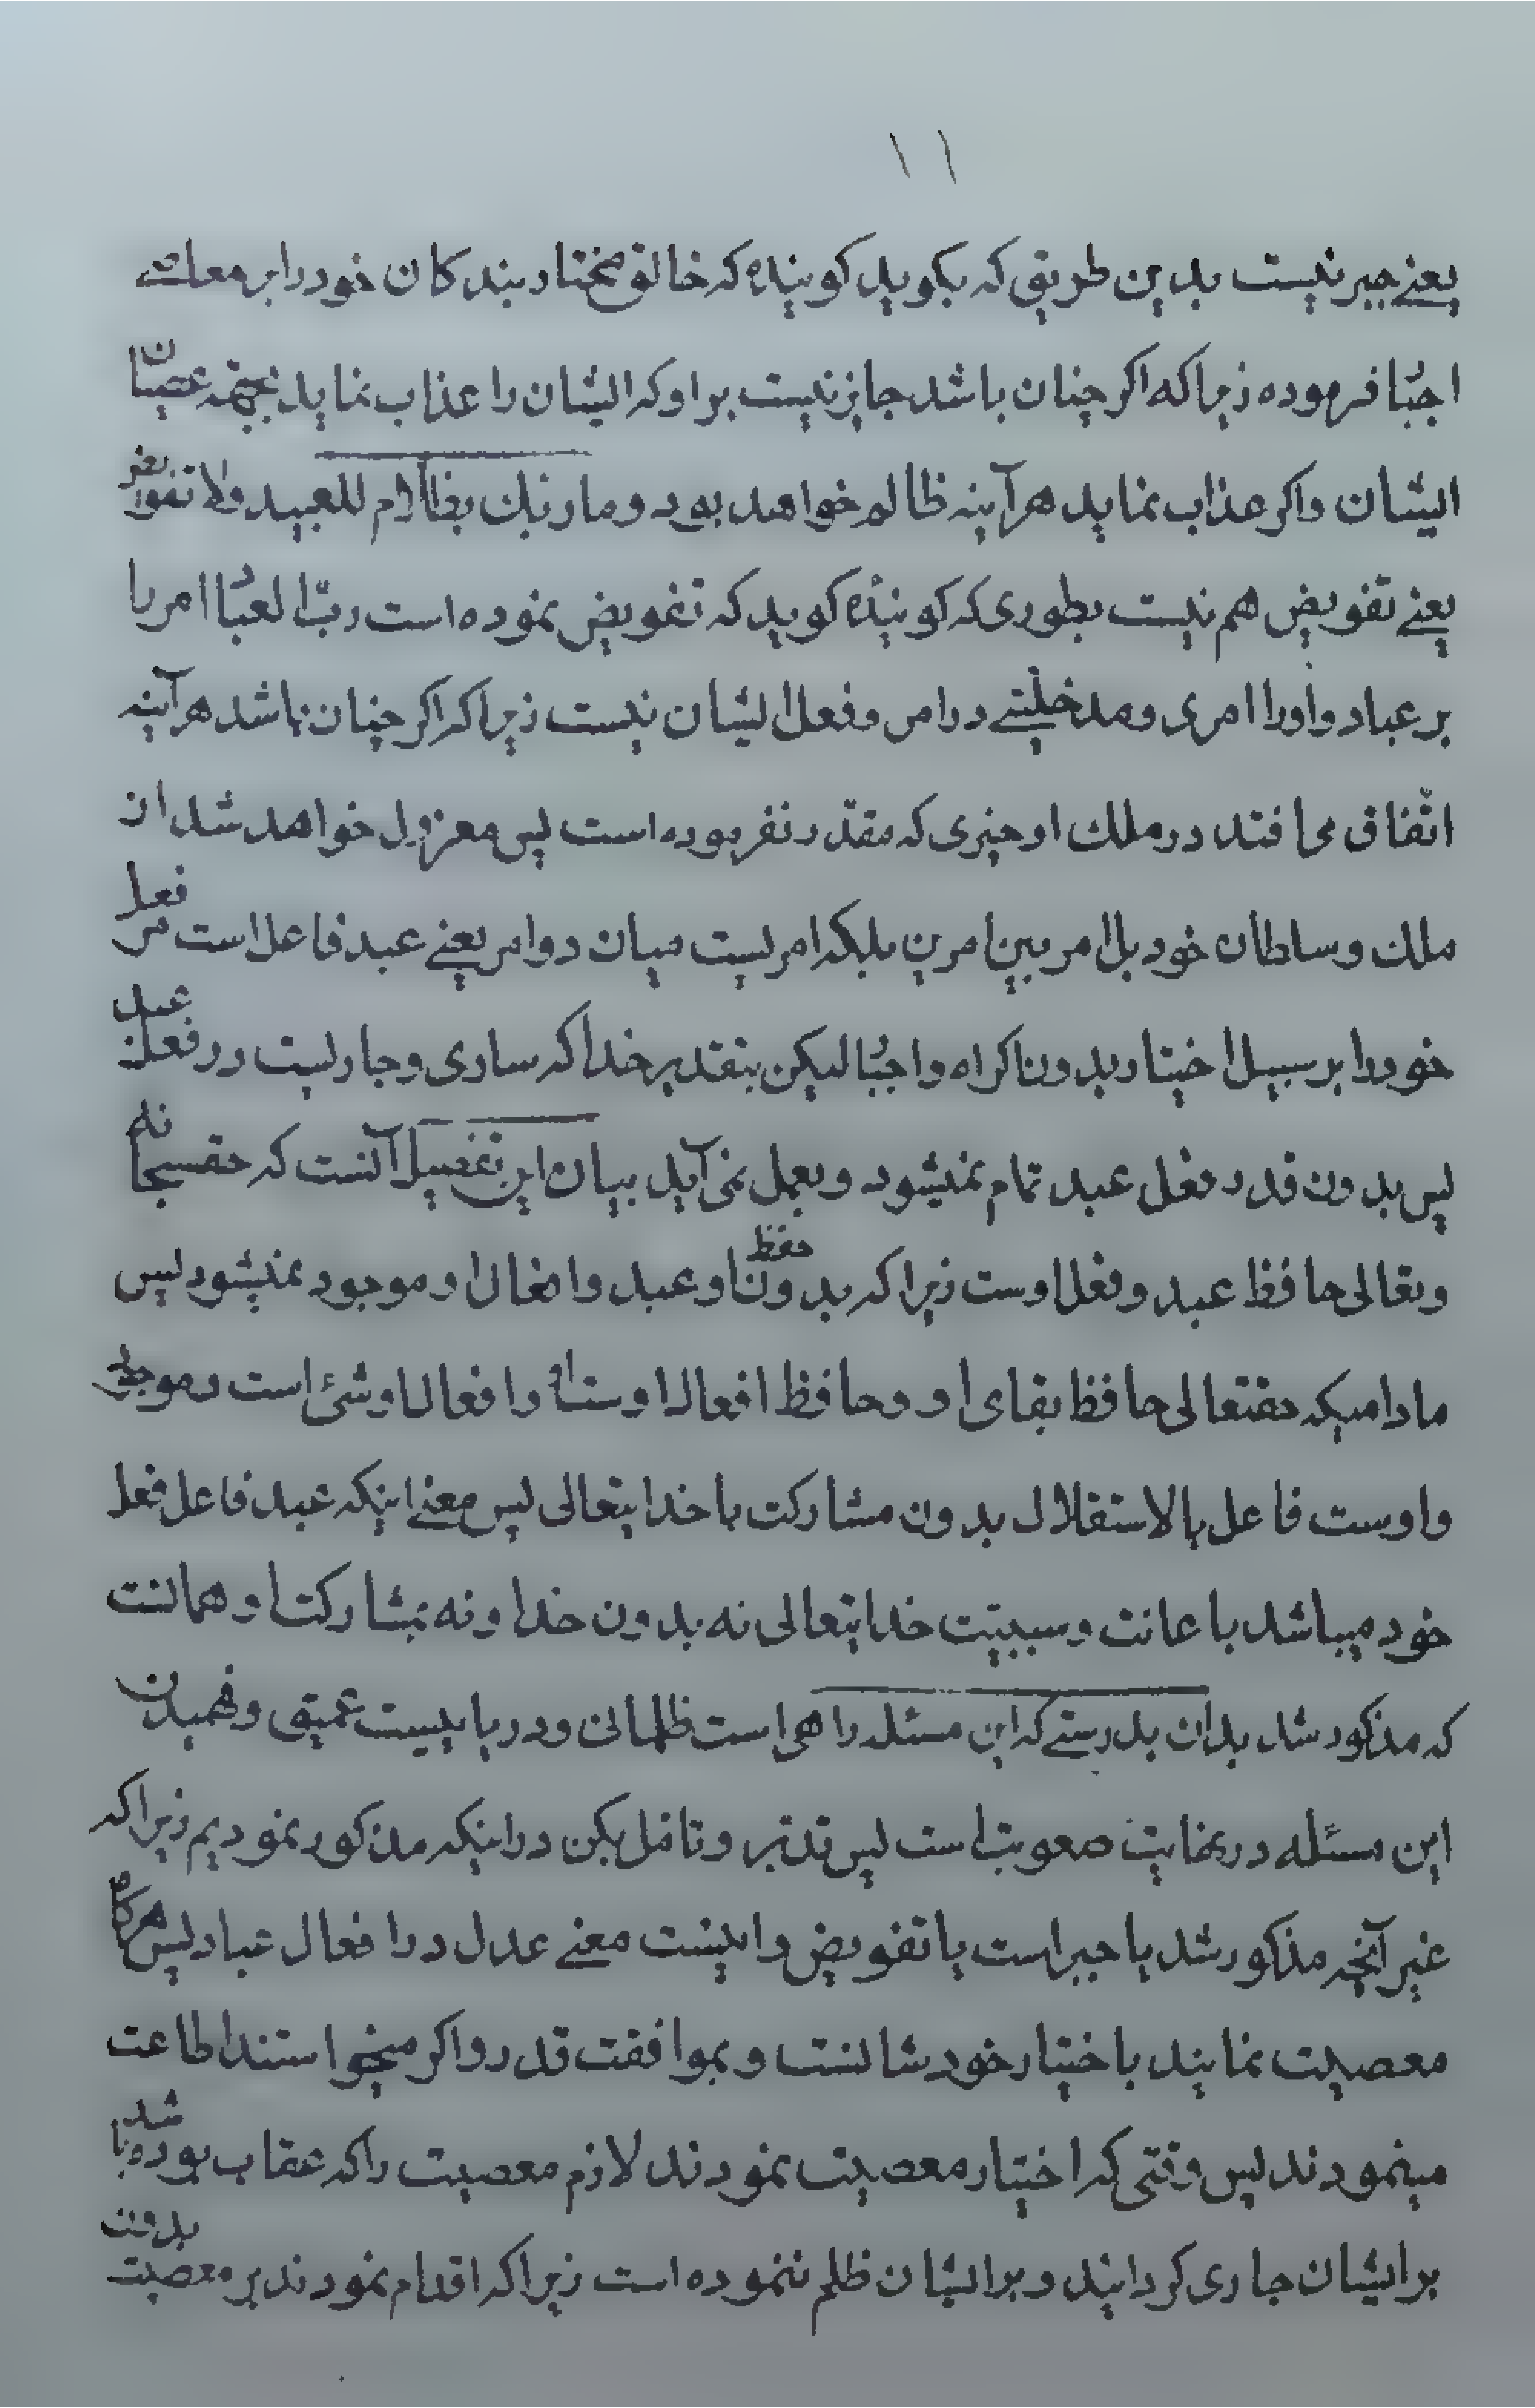 ۱۱
یعنے جبر نیست بدین طریق که بکوید کوینده که خالق مختار بندکان خود را بر معاصے
اجبار فرموده زیرا که اکر چنان باشد جایز نیست بر او که ایشان را عذاب نماید بجهة عصیان
ایشان واکر عذاب نماید هرآینه ظالم خواهد بود وما ربك بظلام للعبید ولا تفویض
یعنے تفویض هم نیست بطوری که کوینده کوید که تفویض نموده است رب العباد امر را
بر عباد واورا امری ومدخلیتے در امر وفعل ایشان نیست زیرا که اکر چنان باشد هرآینه
اتفاق می افتد در ملك او چیزی که مقدر نفرموده است پس معزول خواهد شد از
ملك وسلطان خود بل امر بین امرین بلکه امریست میان دو امر یعنے عبد فاعل است مر فعل
خود را بر سبیل اختیار بدون اکراه واجبار لیکن بتقدیر خدا که ساری وجاریست در فعل عبد
پس بدون قدر فعل عبد تمام نمیشود وبعمل نمی آید بیان این تفصیل آنست که حقسبحانه
وتعالی حافظ عبد وفعل اوست زیرا که بدون حفظ او عبد وافعال او موجود نمیشود پس
مادامیکه حقتعالی حافظ بقای او وحافظ افعال اوست او وافعال او شئ است وموجود
واوست فاعل بالاستقلال بدون مشارکت با خدایتعالی پس معنے اینکه عبد فاعل فعل
خود میباشد باعانت وسببیت خدایتعالی نه بدون خدا ونه بمشارکت او همانست
که مذکور شد بدان بدرستے که این مسئله راهی است ظلمانی ودریاییست عمیق وفهمیدن
این مسئله در نهایت صعوبت است پس تدبر وتامل بکن در اینکه مذکور نمودیم زیرا که
غیر آنچه مذکور شد یا جبر است یا تفویض واینست معنے عدل در افعال عباد پس هرکاه
معصیت نمایند باختیار خودشانست وبموافقت قدر واکر میخواستند اطاعت
مینمودند پس وقتی که اختیار معصیت نمودند لازم معصیت را که عقاب بوده باشد
بر ایشان جاری کردانید وبر ایشان ظلم ننموده است زیرا که اقدام نمودند بر معصیت بدون